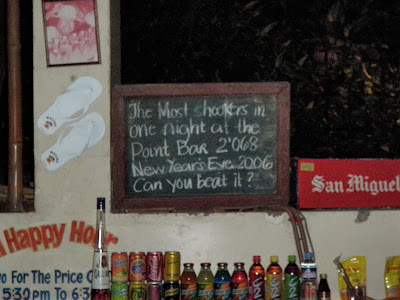 The Most hookers in
one night at the
Point Bar 2'068
New Year's Eve 2006
Can you beat it?
San Miguel
Happy Hour
wo For The Price O
5:30 pm To 6:3